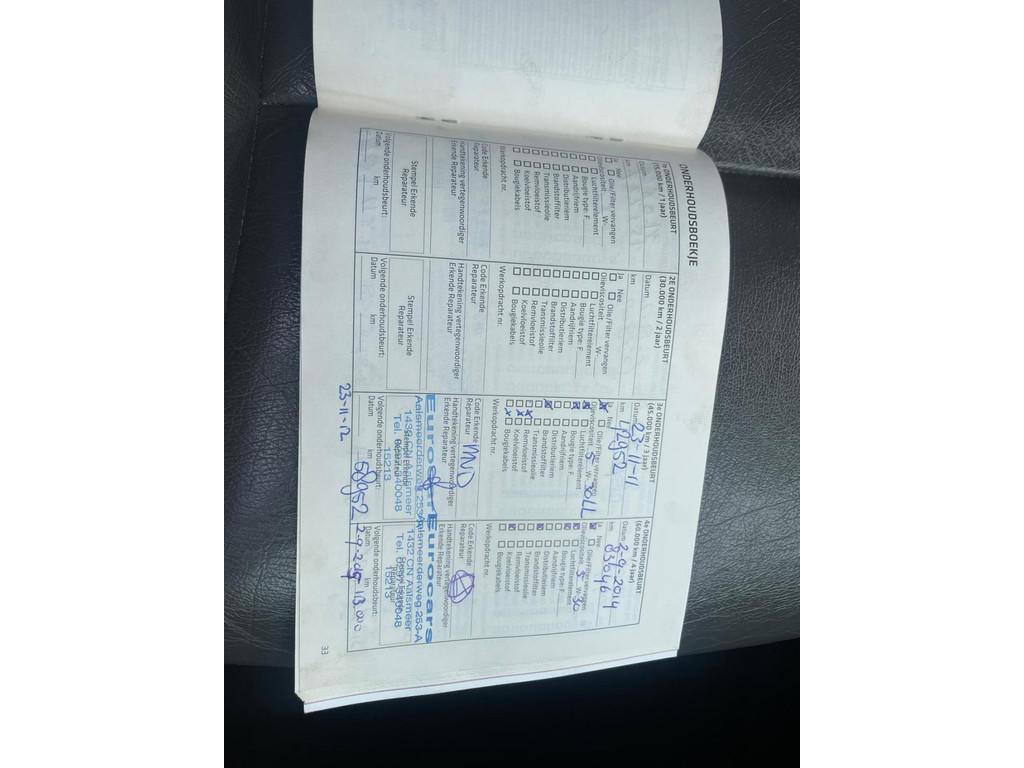 ONDERHOUDSBOEKJE
1e ONDERHOUDSBEURT
(15.000 km / 1 jaar)
Datum
km
Ja Nee
Olie/Filter vervangen
Olieviscositeit: W-
Luchtfilterelement
Bougie type: F
Aandrijfriem
Distributieriem
Brandstoffilter
Transmissieolie
Remvloeistof
Koelvloeistof
Bougiekabels
Werkopdracht nr.
Code Erkende
Reparateur
Handtekening vertegenwoordiger
Erkende Reparateur
Stempel Erkende
Reparateur
Volgende onderhoudsbeurt:
Datum km
2E ONDERHOUDSBEURT
(30.000 km / 2 jaar)
Datum
km
Ja Nee
Olie/Filter vervangen
Olieviscositeit W-
Luchtfilterelement
Bougie type: F
Aandrijfriem
Distributieriem
Brandstoffilter
Transmissieolie
Remvloeistof
Koelvloeistof
Bougiekabels
Werkopdracht nr.
Code Erkende
Reparateur
Handtekening vertegenwoordiger
Erkende Reparateur
Stempel Erkende
Reparateur
Volgende onderhoudsbeurt:
Datum km
3e ONDERHOUDSBEURT
(45.000 km / 3 jaar)
Datum 23-11-11
km 42952
Ja Nee
Olie/Filter vervangen
Olieviscositeit 5 W-30LL
Luchtfilterelement
Bougie type: F
Aandrijfriem
Distributieriem
Brandstoffilter
Transmissieolie
Remvloeistof
Koelvloeistof
Bougiekabels
Werkopdracht nr.
Code Erkende
Reparateur
Handtekening vertegenwoordiger
Erkende Reparateur
Aalsmeerderweg 253-A
1432 CN Aalsmeer
15213
Volgende onderhoudsbeurt:
Datum km
23-11-12 58952
4e ONDERHOUDSBEURT
(60.000 km / 4 jaar)
Datum 2-9-2014
km 83646
Ja Nee
Olie/Filter vervangen
Olieviscositeit 5 W-30
Luchtfilterelement
Bougie type: F
Aandrijfriem
Distributieriem
Brandstoffilter
Transmissieolie
Remvloeistof
Koelvloeistof
Bougiekabels
Werkopdracht nr.
Code Erkende
Reparateur
Handtekening vertegenwoordiger
Erkende Reparateur
Eurocars
Aalsmeerderweg 253-A
1432 CN Aalsmeer
15213
Volgende onderhoudsbeurt:
Datum km
33